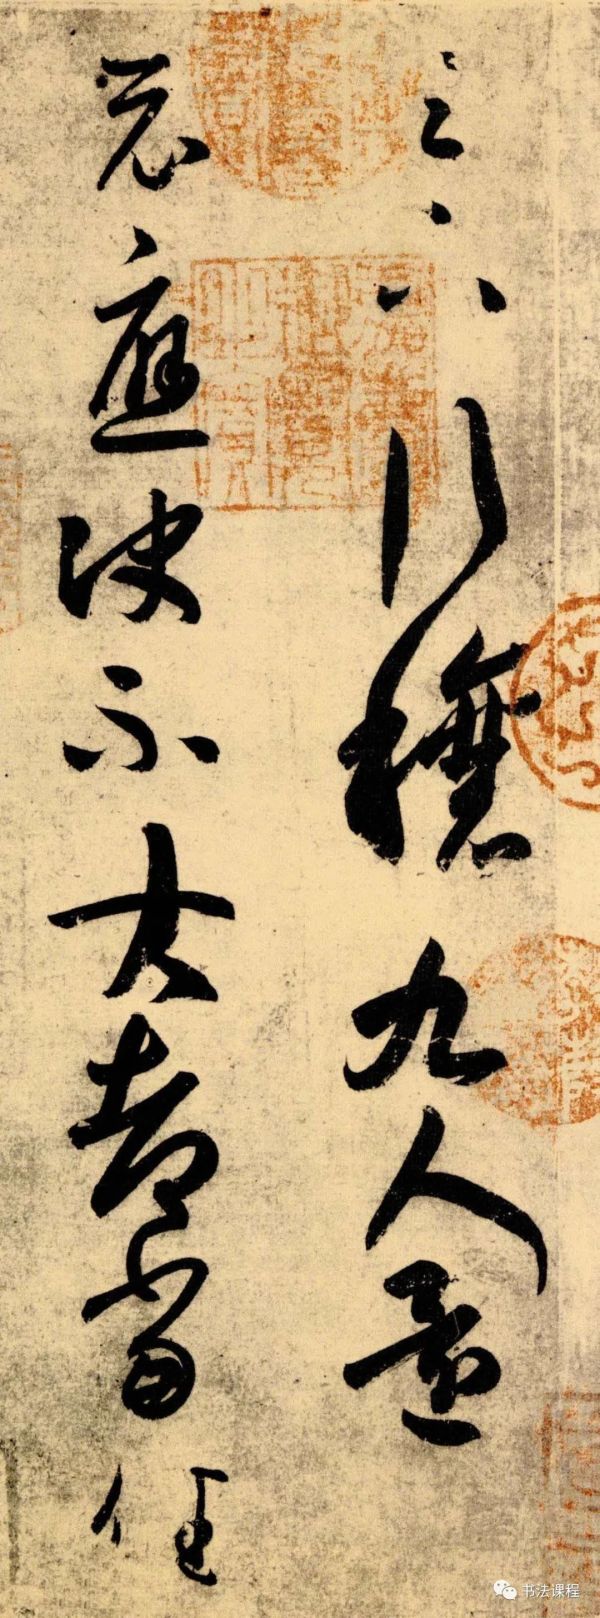 足下行穰九人還
示應決不大都當佳
书法课程